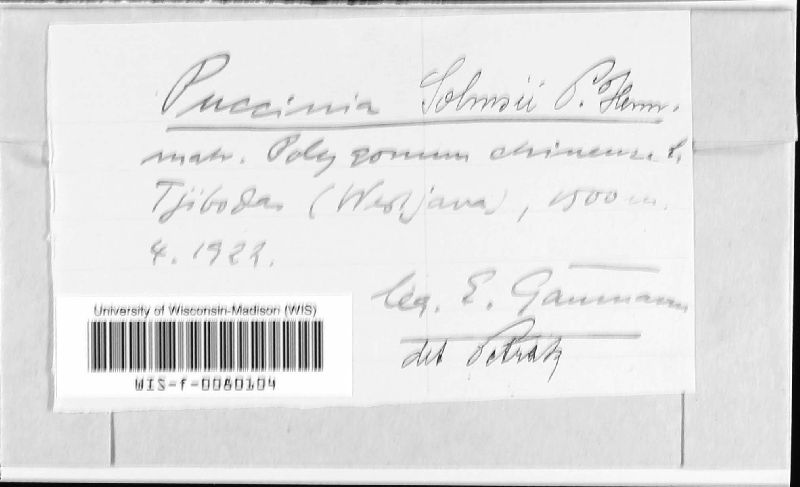 Puccinia Solmsii P. Henn.
matr. Polygonum chinense L.
Tjibodas (Westjava), 1500 m.
4. 1922.
leg. E. Gäumann
det Petrak
University of Wisconsin-Madison (WIS)
WIS-f-0060104